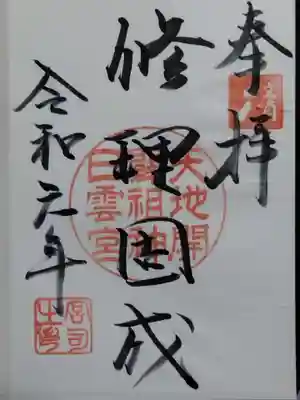 奉拝
修理固成
天地開
闢祖神
白雲宮
令和元年
宮司